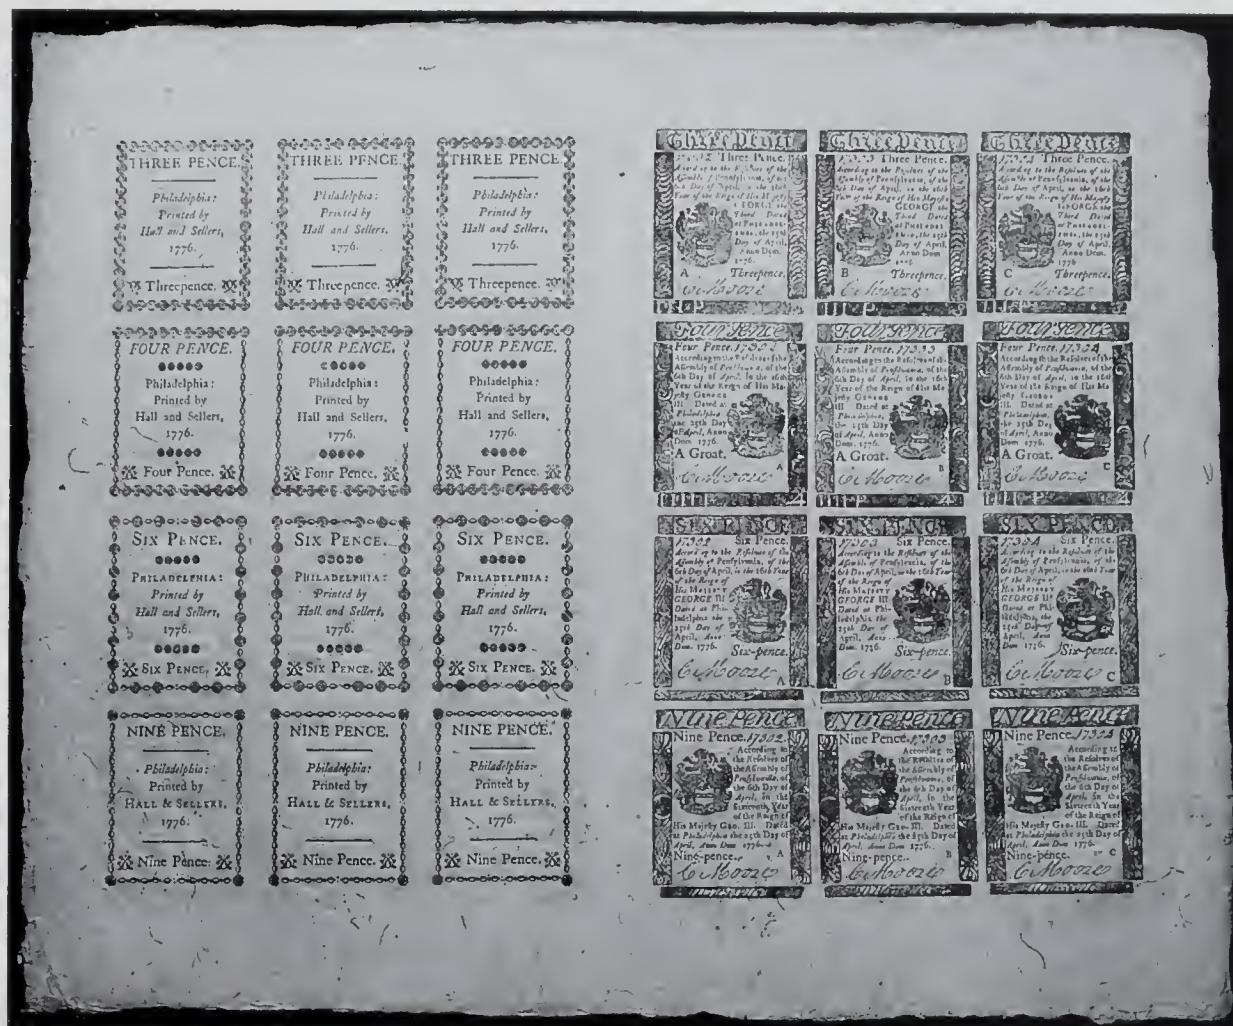 THREE PENCE.
Philadelphia:
Printed by
Hall and Sellers,
1776.
Threepence.
THREE PENCE.
Philadelphia:
Printed by
Hall and Sellers,
1776.
Threepence.
THREE PENCE.
Philadelphia:
Printed by
Hall and Sellers,
1776.
Threepence.
FOUR PENCE.
Philadelphia:
Printed by
Hall and Sellers,
1776.
Four Pence.
FOUR PENCE.
Philadelphia:
Printed by
Hall and Sellers,
1776.
Four Pence.
FOUR PENCE.
Philadelphia:
Printed by
Hall and Sellers,
1776.
Four Pence.
SIX PENCE.
PHILADELPHIA:
Printed by
Hall and Sellers,
1776.
SIX PENCE.
SIX PENCE.
PHILADELPHIA:
Printed by
Hall and Sellers,
1776.
SIX PENCE.
SIX PENCE.
PHILADELPHIA:
Printed by
Hall and Sellers,
1776.
SIX PENCE.
NINE PENCE.
Philadelphia:
Printed by
HALL & SELLERS,
1776.
Nine Pence.
NINE PENCE.
Philadelphia:
Printed by
HALL & SELLERS,
1776.
Nine Pence.
NINE PENCE.
Philadelphia:
Printed by
HALL & SELLERS,
1776.
Nine Pence.
Three Pence
Three Pence.
According to the Resolves of the
Assembly of Pennsylvania, of the
6th Day of April, in the 16th
Year of the Reign of His Majesty
GEORGE the
Third Dated
the 25th
Day of April,
Anno Dom.
1776.
A Threepence.
Three Pence
Three Pence.
According to the Resolves of the
Assembly of Pennsylvania, of the
6th Day of April, in the 16th
Year of the Reign of His Majesty
GEORGE the
Third Dated
the 25th
Day of April,
Anno Dom
1776
B Threepence.
Three Pence
Three Pence.
According to the Resolves of the
Assembly of Pennsylvania, of the
6th Day of April, in the 16th
Year of the Reign of His Majesty
GEORGE the
Third Dated
the 25th
Day of April,
Anno Dom
1776
C Threepence.
Four Pence
Four Pence.
According to the Resolves of the
Assembly of Pensylvania, of the
6th Day of April, in the 16th
Year of the Reign of His Ma-
jesty GEORGE
III Dated at
Philadelphia
the 25th Day
of April, Anno
Dom. 1776.
A Groat.
A
Four Pence
Four Pence. 17303
According to the Resolves of the
Assembly of Pensylvania, of the
6th Day of April, in the 16th
Year of the Reign of His Ma-
jesty GEORGE
III Dated at
Philadelphia,
the 25th Day
of April, Anno
Dom. 1776.
A Groat.
B
Four Pence
Four Pence. 17304
According to the Resolves of the
Assembly of Pensylvania, of the
6th Day of April, in the 16th
Year of the Reign of His Ma-
jesty GEORGE
III Dated at
Philadelphia,
the 25th Day
of April, Anno
Dom. 1776.
A Groat.
C
SIX PENCE
17302 Six Pence.
According to the Resolves of the
Assembly of Pensylvania, of the
6th Day of April, in the 16th Year
of the Reign of
His MAJESTY
GEORGE III
Dated at Phi-
ladelphia the
25th Day of
April, Anno
Dom. 1776.
Six-pence.
A
SIX PENCE
17303 Six Pence.
According to the Resolves of the
Assembly of Pensylvania, of the
6th Day of April, in the 16th Year
of the Reign of
His MAJESTY
GEORGE III
Dated at Phi-
ladelphia the
25th Day of
April, Anno
Dom. 1776.
Six-pence.
B
SIX PENCE
17304 Six Pence.
According to the Resolves of the
Assembly of Pensylvania, of the
6th Day of April, in the 16th Year
of the Reign of
His MAJESTY
GEORGE III
Dated at Phi-
ladelphia, the
25th Day of
April, Anno
Dom 1776.
Six-pence.
C
Nine Pence
Nine Pence. 17302.
According to
the Resolves of
the Assembly of
Pensylvania, of
the 6th Day of
April, in the
Sixteenth Year
of the Reign of
His Majesty GEO. III. Dated
at Philadelphia the 25th Day of
April, Anno Dom 1776.
Nine-pence.
A
Nine Pence
Nine Pence. 17303
According to
the Resolves of
the Assembly of
Pensylvania, of
the 6th Day of
April, in the
Sixteenth Year
of the Reign of
His Majesty GEO. III. Dated
at Philadelphia the 25th Day of
April, Anno Dom 1776.
Nine-pence.
B
Nine Pence
Nine Pence. 17304
According to
the Resolves of
the Assembly of
Pensylvania, of
the 6th Day of
April, in the
Sixteenth Year
of the Reign of
His Majesty GEO. III. Dated
at Philadelphia the 25th Day of
April, Anno Dom 1776.
Nine-pence.
C